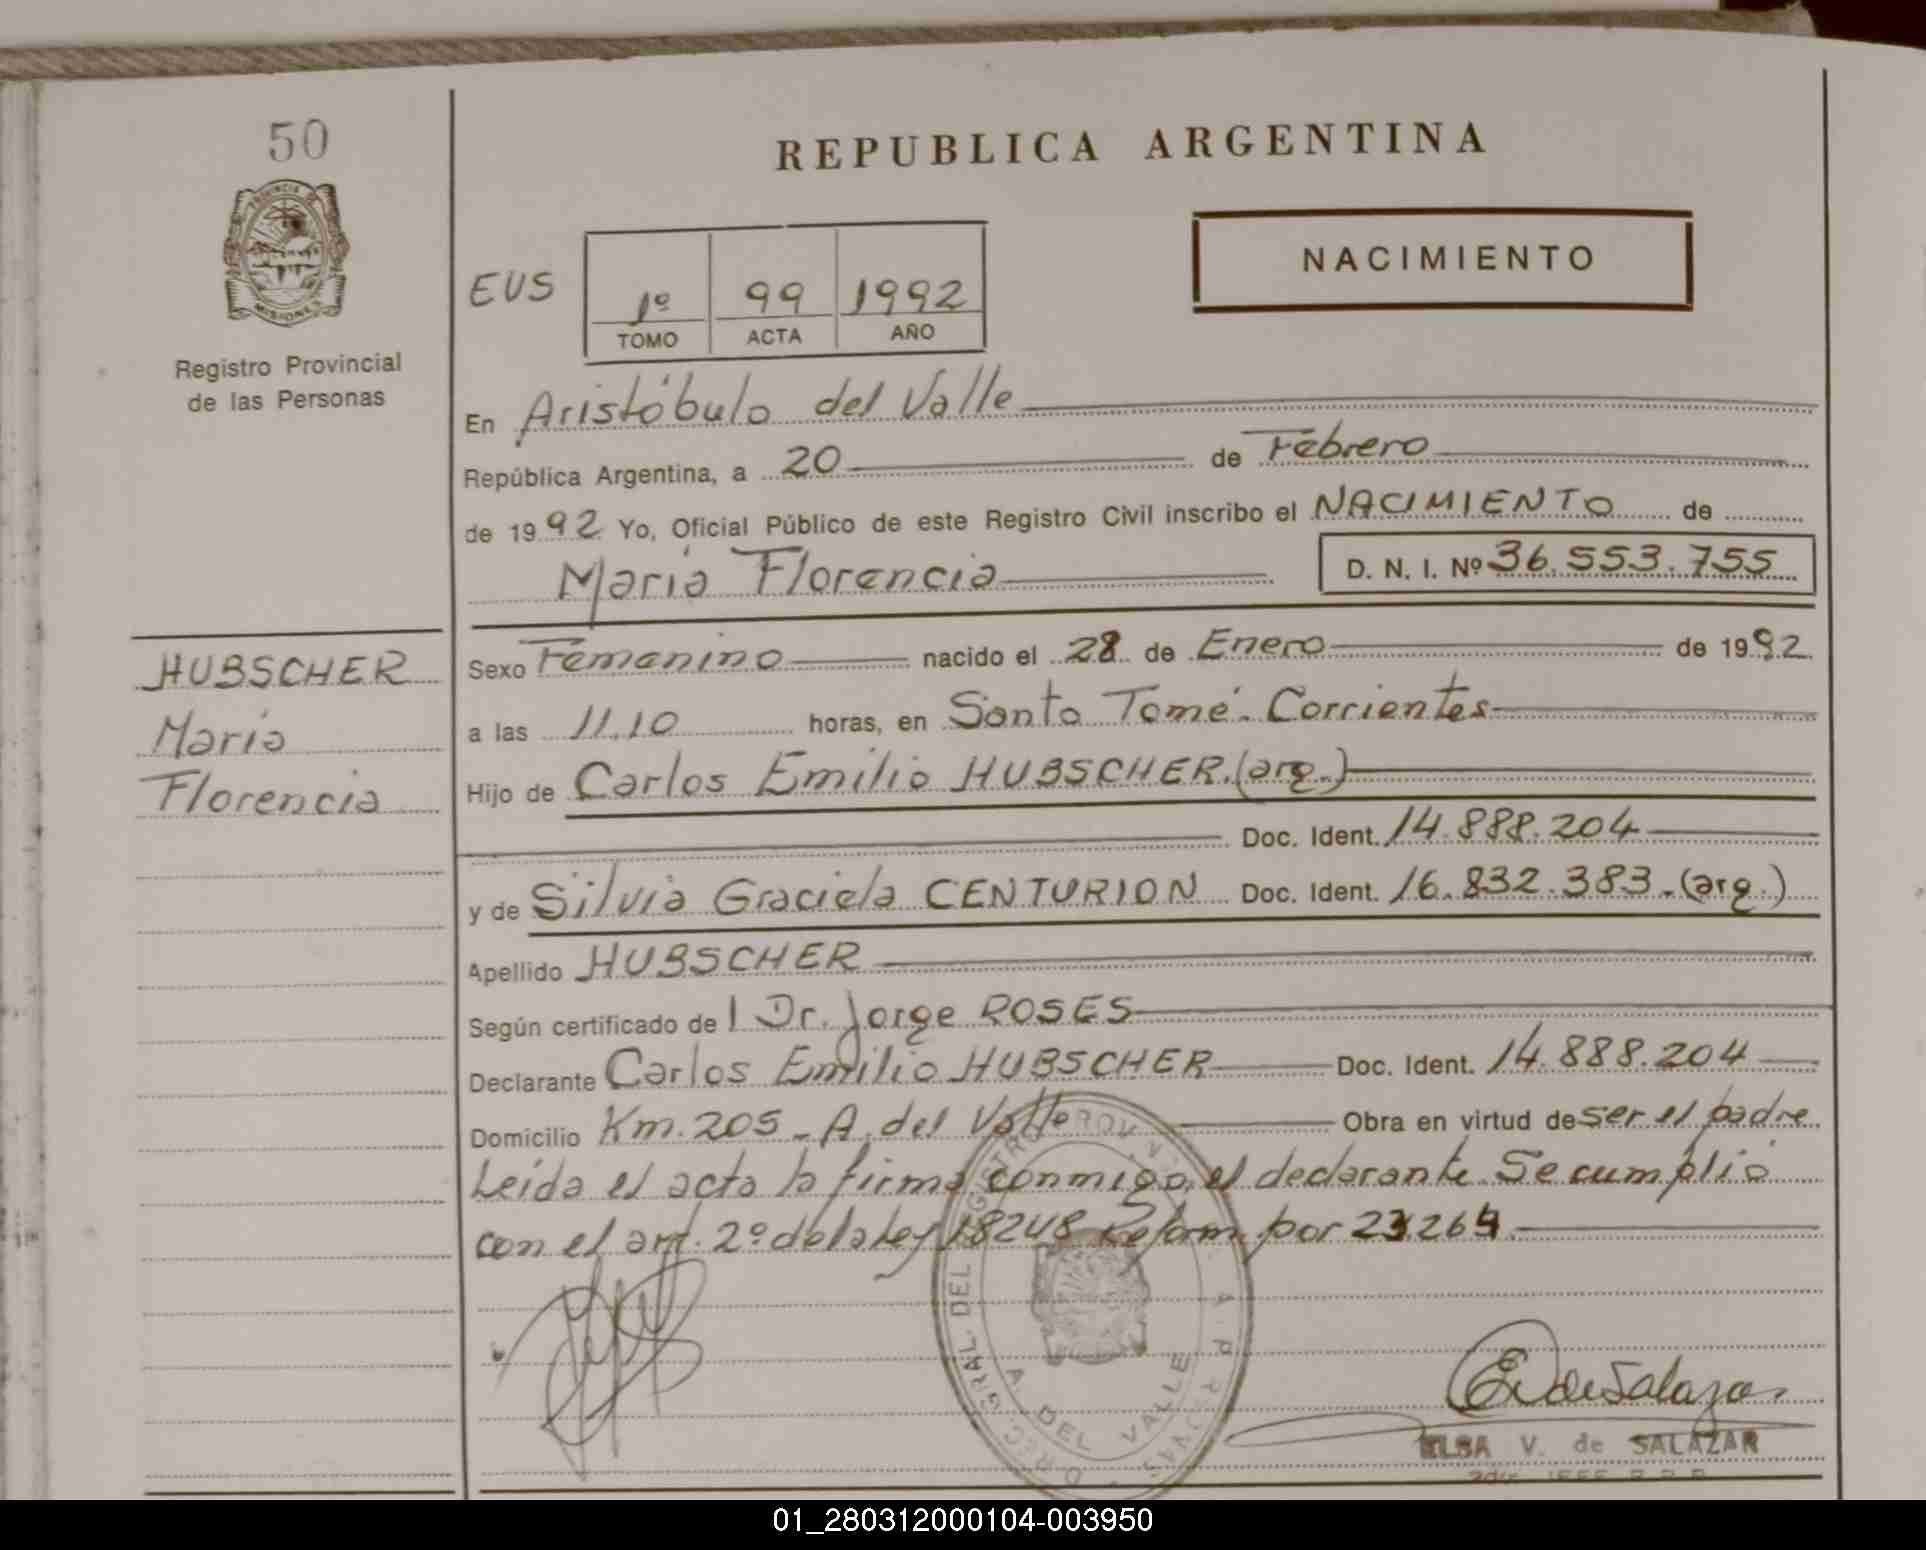 50
REPUBLICA ARGENTINA
PROVINCIA DE
MISIONES
Registro Provincial
de las Personas
NACIMIENTO
EUS
1º 99 1992
TOMO ACTA AÑO
En Aristóbulo del Valle
República Argentina, a 20 de Febrero
de 1992 Yo, Oficial Público de este Registro Civil inscribo el NACIMIENTO de
María Florencia D. N. I. Nº 36.553.755
HUBSCHER
María
Florencia
Sexo Femenino nacido el 28 de Enero de 1992
a las 11.10 horas, en Santo Tomé - Corrientes
Hijo de Carlos Emilio HUBSCHER.(arg.)
Doc. Ident. 14.888.204
y de Silvia Graciela CENTURION Doc. Ident. 16.832.383.-(arg.)
Apellido HUBSCHER
Según certificado de l Dr. Jorge ROSES
Declarante Carlos Emilio HUBSCHER Doc. Ident. 14.888.204
Domicilio Km. 205 - A. del Valle Obra en virtud de ser el padre
Leída el acta la firma conmigo el declarante. Se cumplió
con el art. 2º de la Ley 18248 Reform. por 23264.
GRAL DEL REGISTRO PROV.
A. DEL VALLE
E. V. de Salazar
ELSA V. de SALAZAR
01_280312000104-003950